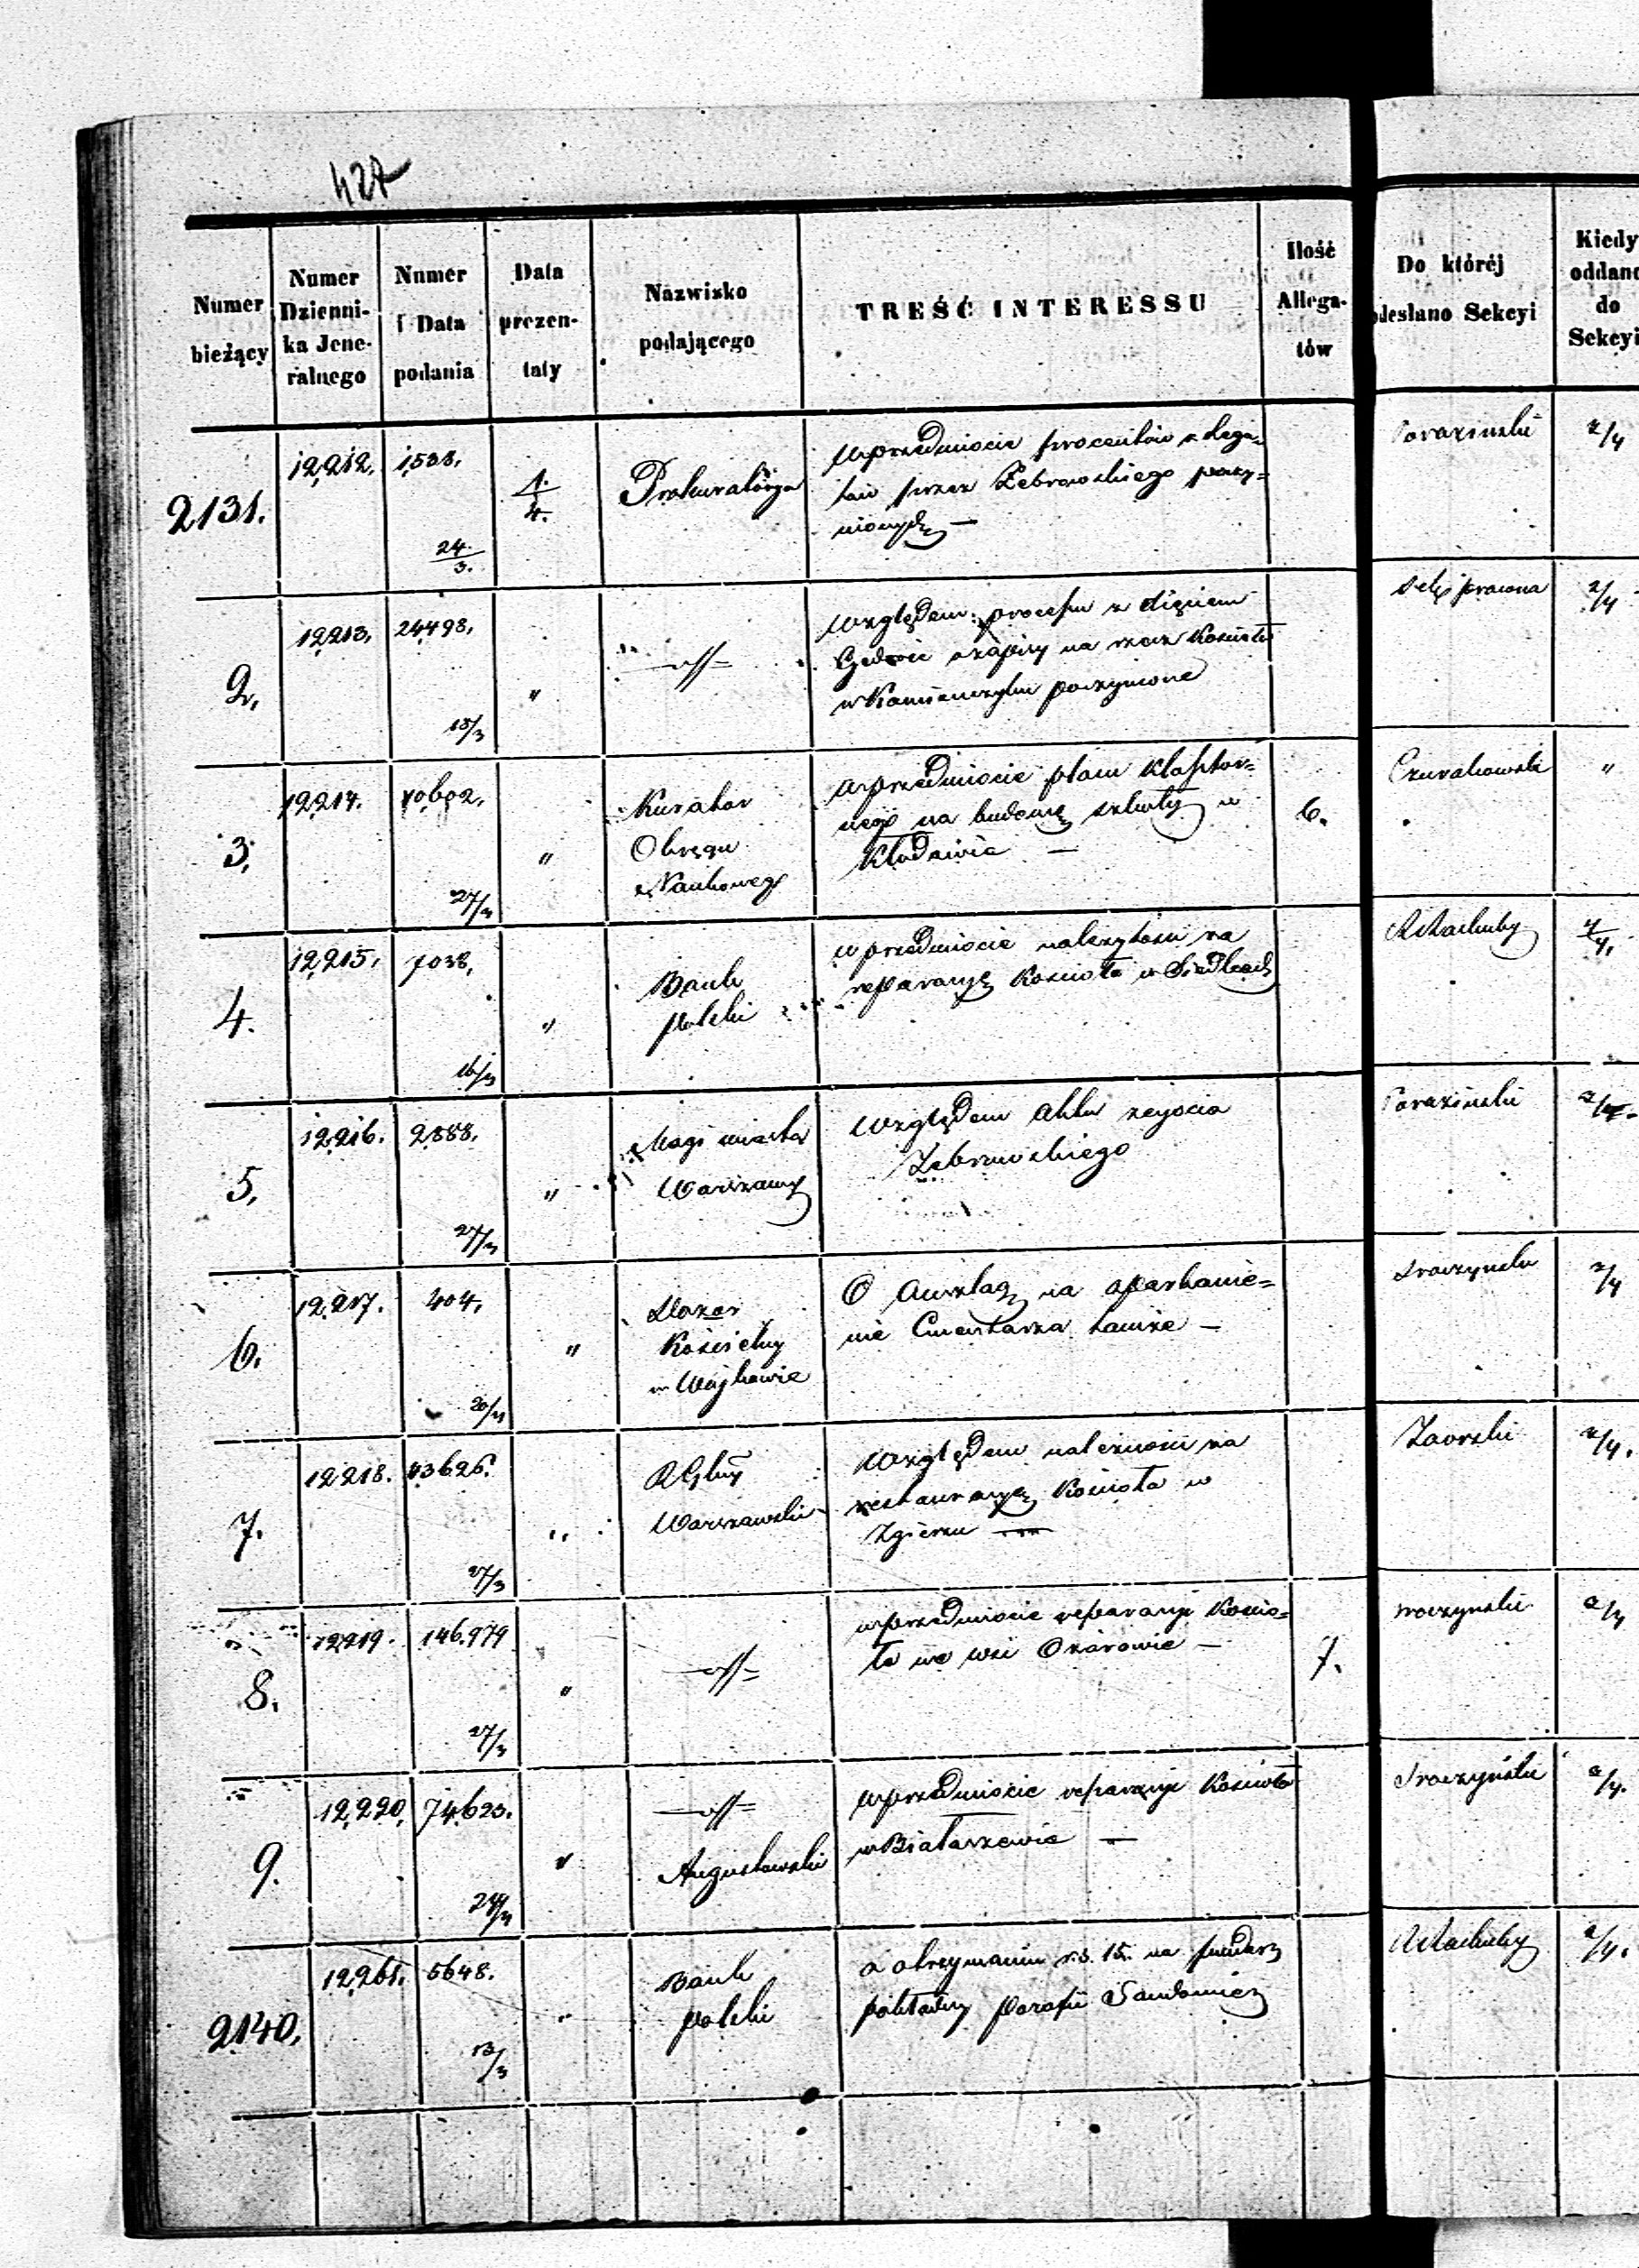 427
Numer bieżący
Numer Dzienni-ka Jene-ralnego
Numer i Data podania
Data prezen-taty
Nazwisko podającego
TREŚĆ INTERESSU
Ilość Allega-tów
Do której odesłano Sekcyi
Kiedy oddano do Sekcyi
2131. 12,212. 1,538. 24/3. 1/4. Prokuratorya
w przedmiocie procentów z lega=
tów przez Żebrowskiego poczy=
nionych —
2/4
2, 12,213, 24,498, 18/3 "
względem procesu z
o zapisy na rzecz Kościoła
w Kamieńczyku poczynione
Sekc prawna 2/4
3, 12,214. 10,602, 27/3 "
Kurator
Okręgu
Naukowego
w przedmiocie placu klasztor=
nego na budowę szkoły w
Kłodawie —
6.
Czurakowski "
4. 12,215, 7038, 16/3 "
Bank
polski
w przedmiocie należytości za
reparacyę Kościoła w Siedlcach
Rachuby 2/4.
5, 12,216. 2,888. 27/3 "
Magi miasta
Warszawy
względem aktu zejścia
Żebrowskiego
2/4.
6. 12,217. 404, "
Dozór
Kościelny
w Wojkowie
O na oparkanie=
nie Cmentarza tamże —
2/4
7. 12,218. 43626. 27/3 "
RGlny
Warszawski
względem należności za
restauracyę Kościoła w
Zgierzu —
Zaorski 2/4.
8. 12,219. 146,979 27/3 "
w przedmiocie reparacyi Kościo=
ła we wsi Ożarowie —
7.
2/4
9. 12,220, 74,623. 24/3 "
Augustowski
w przedmiocie reparacyi Kościoła
w Białaszewie —
2/4.
2140. 12,261. 5648. 13/3 "
Bank
polski
o otrzymaniu r.s. 15. na fundusz
pokładny parafii Sandomierz
Rachuby 2/4.